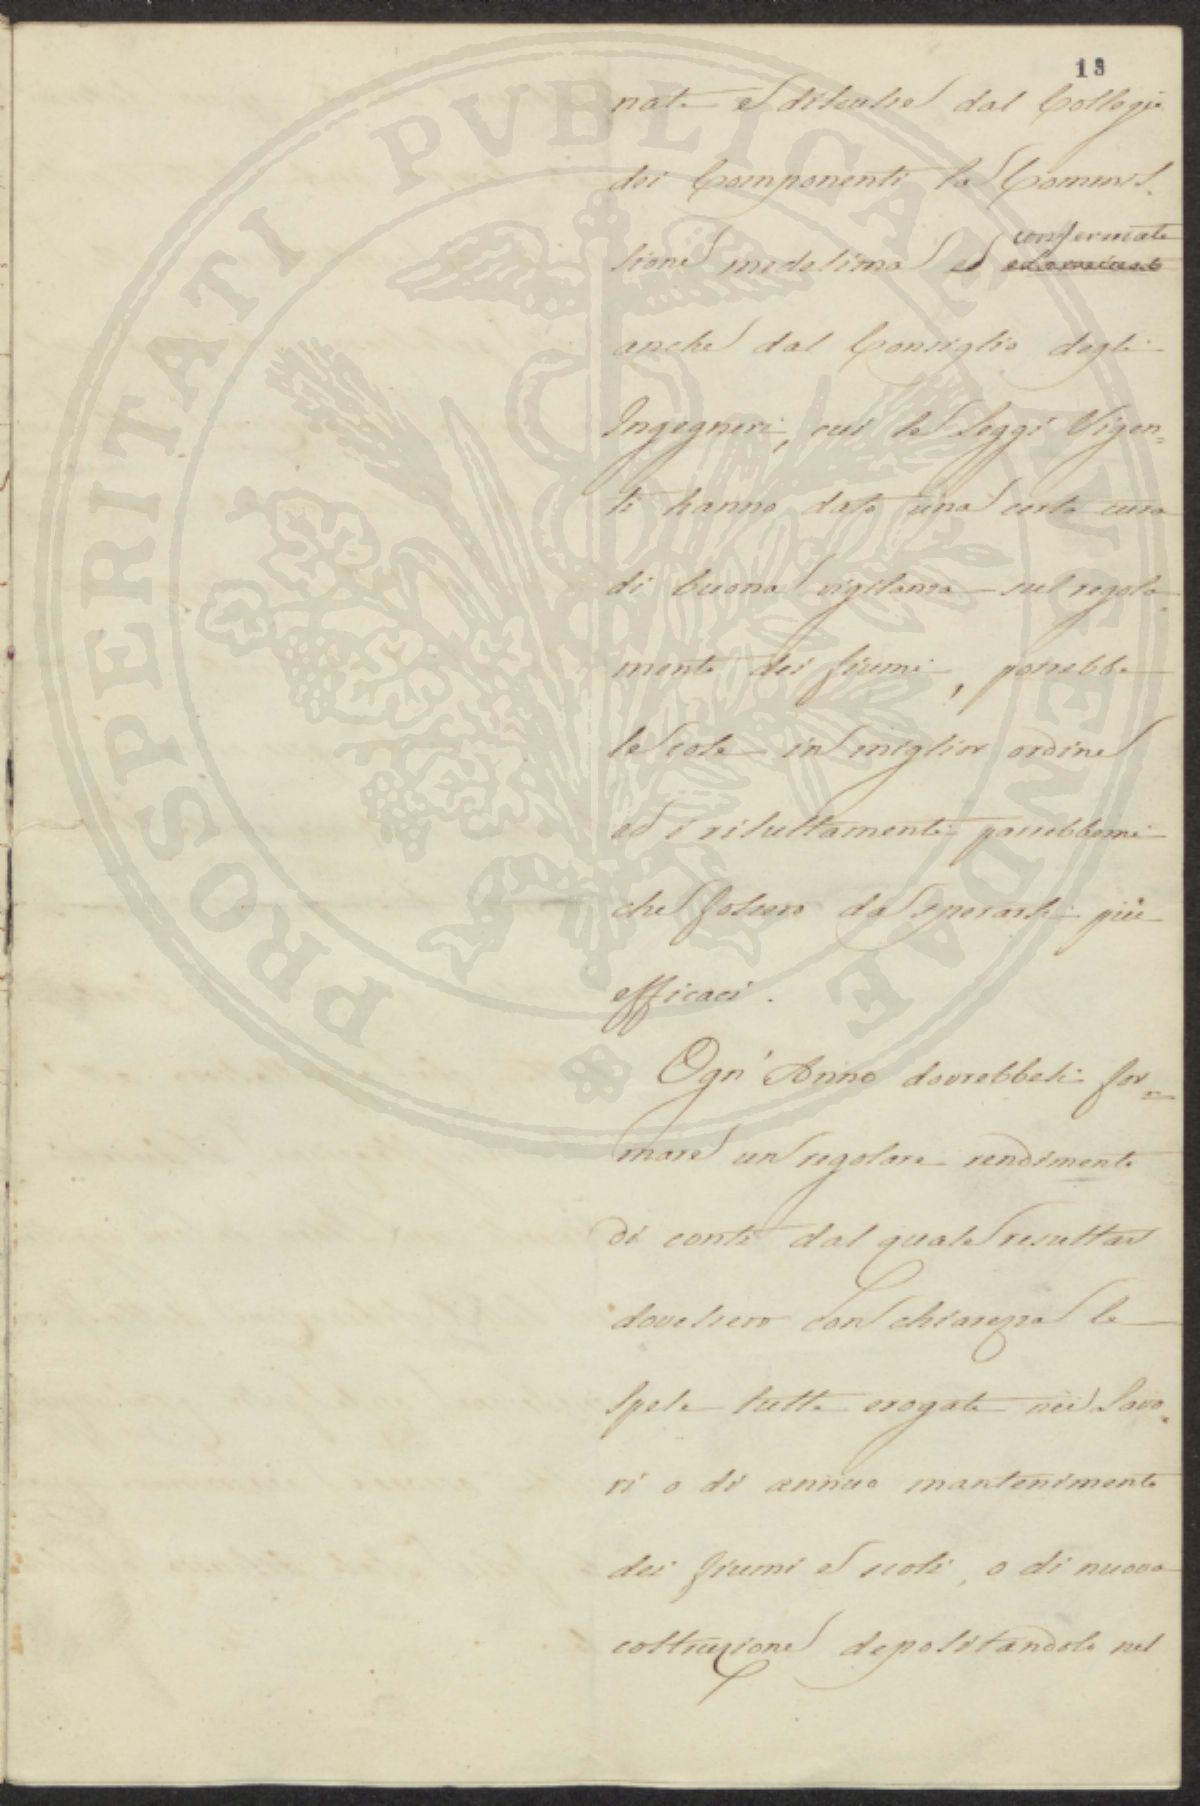 13
nate e discusse dal Collegio
dei Componenti la Commis-
sione medesima ed confermate
esaminate
anche dal Consiglio degli
Ingegneri, cui le Leggi Vigen=
ti hanno dato una certa cura
di buona vigilanza sul regola=
mento dei fiumi, porrebbe
le cose in miglior ordine
ed i risultamenti parrebbemi
che fossero da sperarsi più
efficaci.
Ogn' Anno dovrebbesi for=
mare un regolare rendimento
di conti dal quale resultar
dovessero con chiarezza le
spese tutte erogate nei Lavo=
ri o di annuo mantenimento
dei fiumi e scoli, o di nuova
costruzione depositandolo nel
PROSPERITATI PVBLICAE AVGENDAE